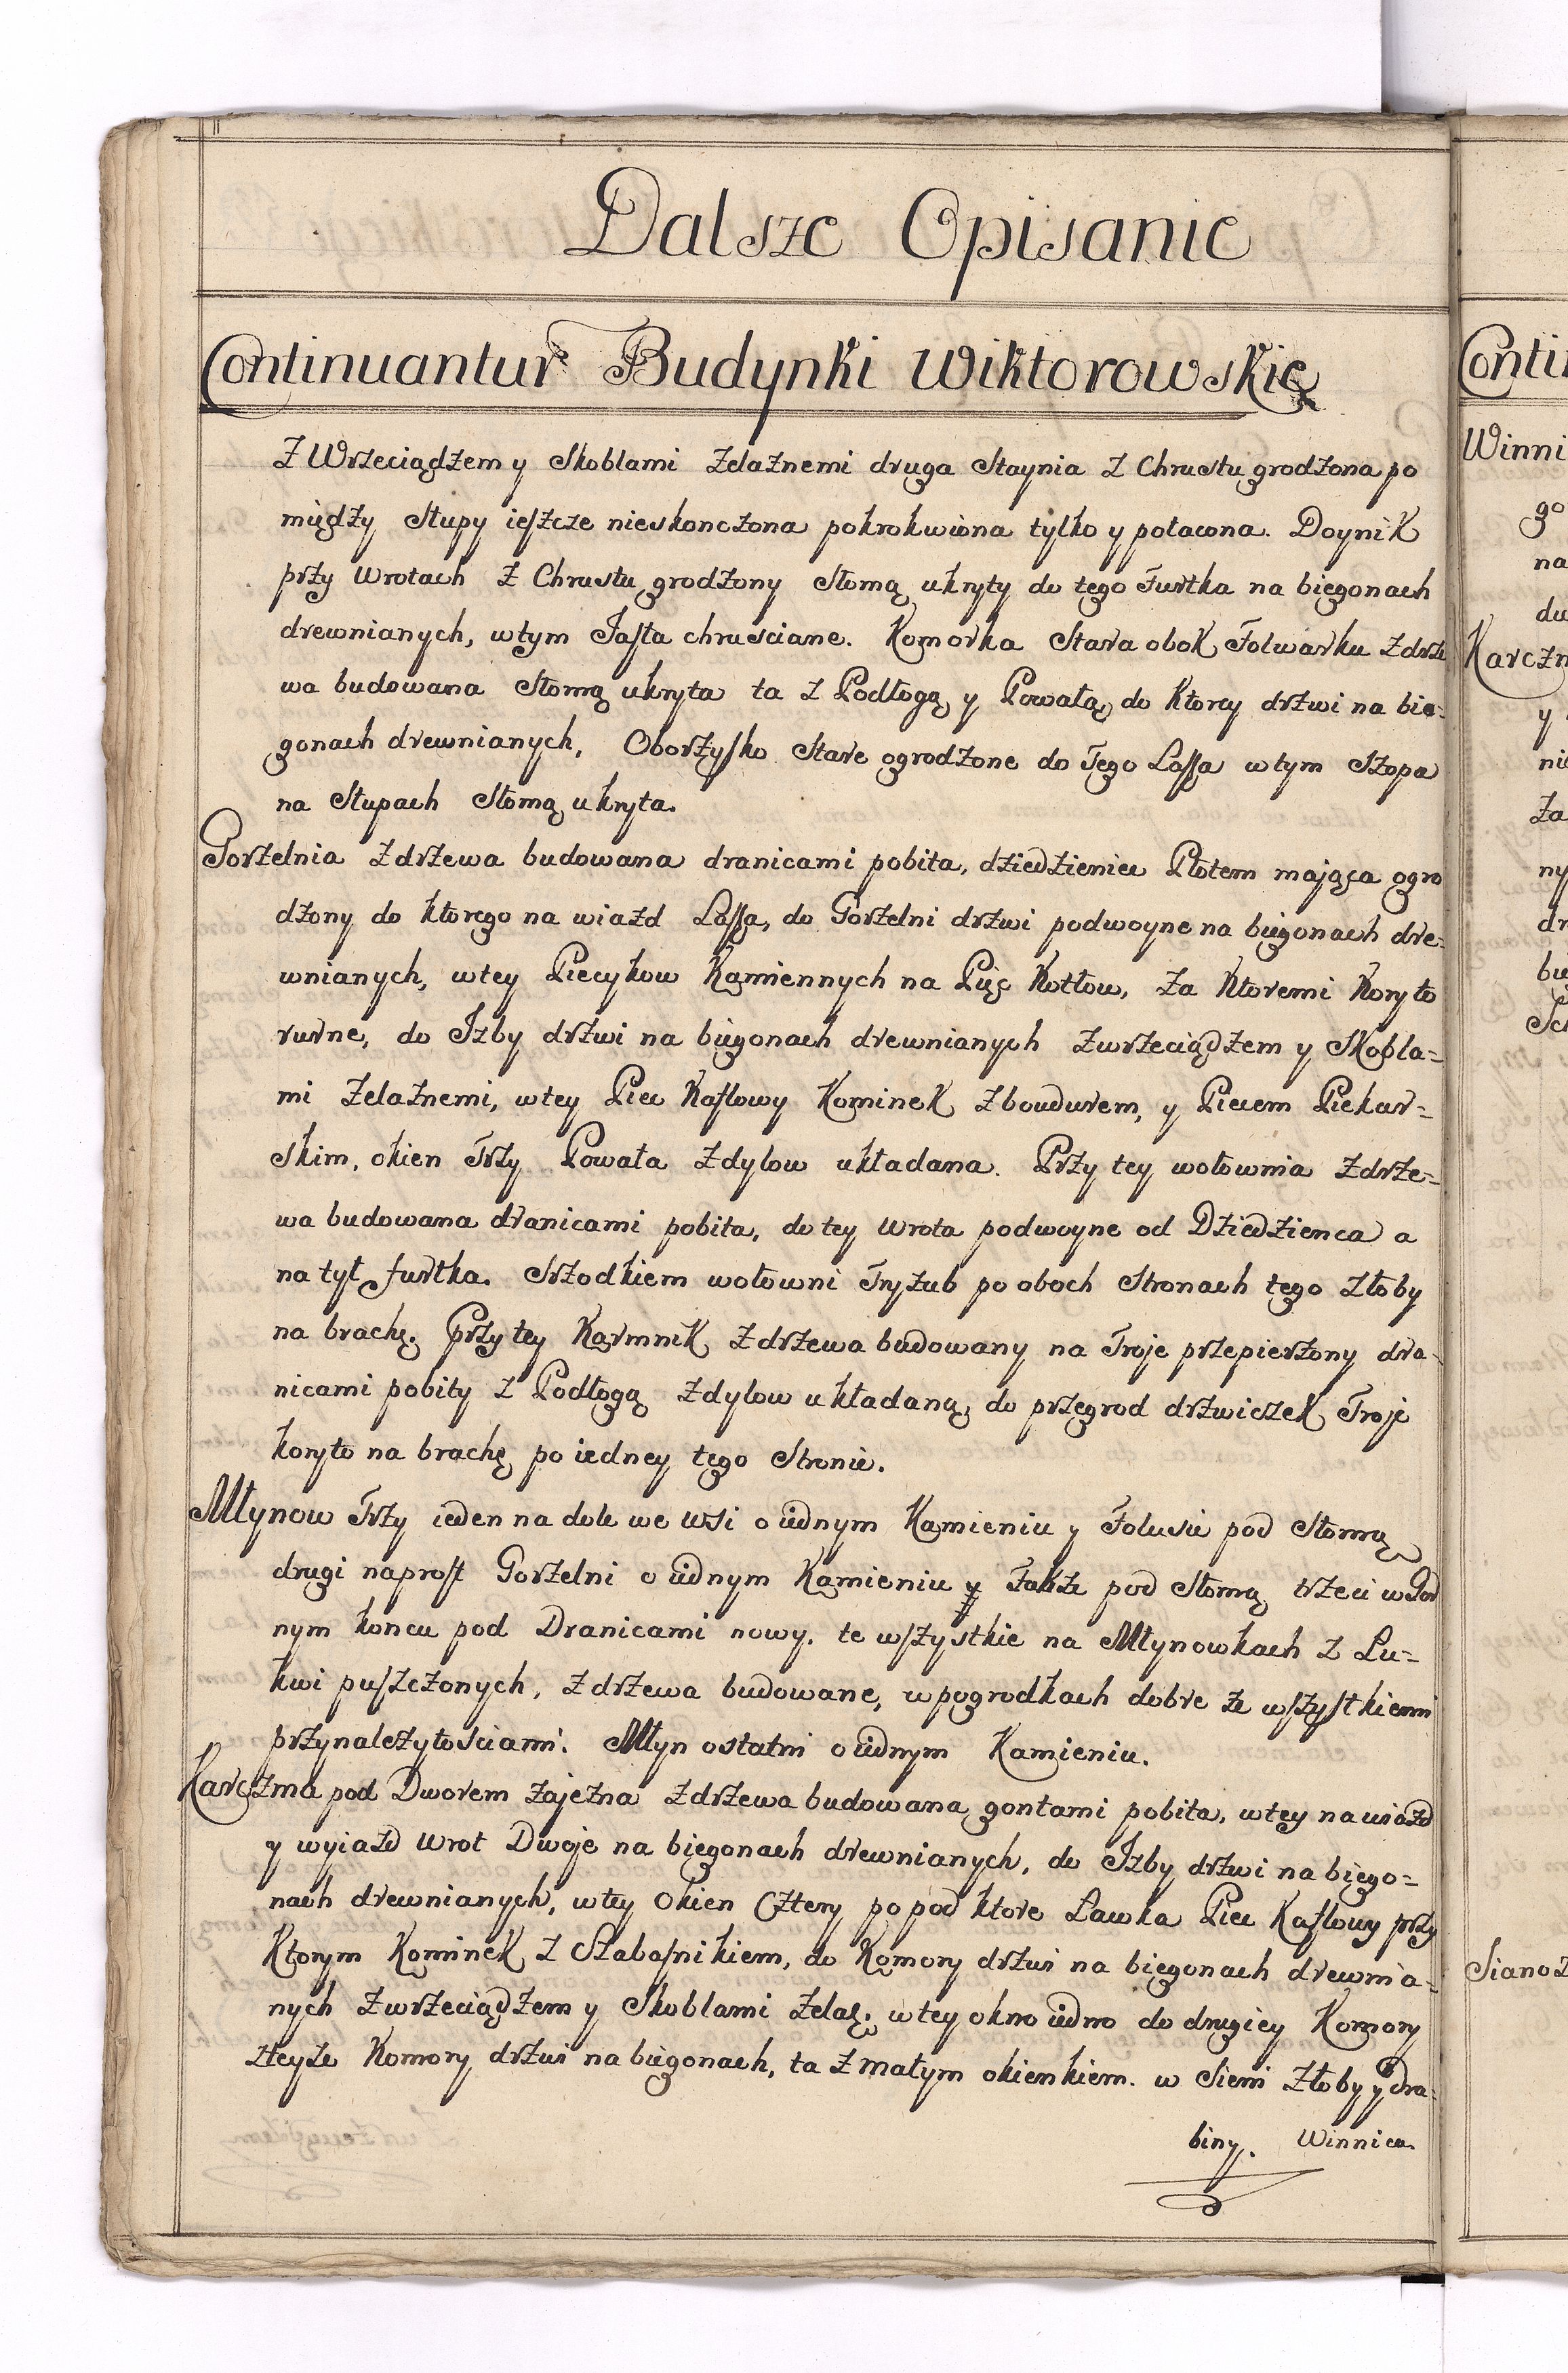 Dalsze Opisanie
Continuantur Budynki Wiktorowskie
Z Wrzeciądzem y Skoblami Zelaznemi druga Staynia z Chrustu grodzona po
między Słupy ieszcze nieskonczona pokrokwiona tylko y połacona. Doynik
przy Wrotach z Chrustu grodzony Słomą ukryty do tego Furtka na biegonach
drewnianych, w tym Jasła chrusciane. Komorka Stara obok Folwarku z drze
wa budowana Słomą ukryta ta z Podłogą y Powałą, do Ktorey drzwi na bie-
gonach drewnianych, Oborzysko Stare ogrodzone do Tego Lassa w tym Szopa
na Słupach Słomą ukryta.
Gorzelnia z drzewa budowana dranicami pobita, dziedzieniec Płotem mająca ogro
dzony do ktorego na wiazd Lassa, do Gorzelni drzwi podwoyne na biegonach dre-
wnianych, w tey Piecykow Kamiennych na Pięc Kotłow, za Ktoremi Koryto
rurne, do Izby drzwi na biegonach drewnianych z wrzeciądzem y Skobla-
mi Zelaznemi, w tey Piec Kaflowy Kominek z boudurem, y Piecem Piekar-
skim, okien Trzy Powała z dylow układana. Przy tey wołownia z drze-
wa budowana dranicami pobita, do tey wrota podwoyne od Dziedzienca a
na tył furtka. Srzodkiem wołowni Tryzub po oboch Stronach tego Złoby
na brachę. Przy tey Karmnik z drzewa budowany na Troje przepierzony dra-
nicami pobity z Podłogą z dylow układaną, do przegrod drzwiczek Troje
koryto na brachę po iedney tego Stronie.
Młynow Trzy ieden na dole we Wsi o iednym Kamieniu y Folusie pod Słomą
drugi naprost Gorzelni o iednym Kamieniu y Także pod Słomą, trzeci w
nym koncu pod Dranicami nowy. te wszystkie na Młynowkach z Łu-
kwi puszczonych, z drzewa budowane, w pogrodkach dobre ze wszystkiemi
przynalezytosciami. Młyn ostatni o iednym Kamieniu.
Karczma pod Dworem zajezna z drzewa budowana gontami pobita, w tey na wiazd
y wyiazd wrot Dwoje na biegonach drewnianych, do Izby drzwi na biego-
nach drewnianych, w tey Okien Cztery po pod ktore Ławka Piec Kaflowy przy
Ktorym Kominek z Szabasnikiem, do Komory drzwi na biegonach drewnia-
nych z wrzeciądzem y Skoblami zelaz: w tey okno iedno do drugiey Komory
z teyze Komory drzwi na biegonach, ta z małym okienkiem. w Sieni Złoby y dra-
biny. Winnica.
Conti
Winni
go
na
du
Karczm
y
nie
za
ny
dr
bie
Sianoż